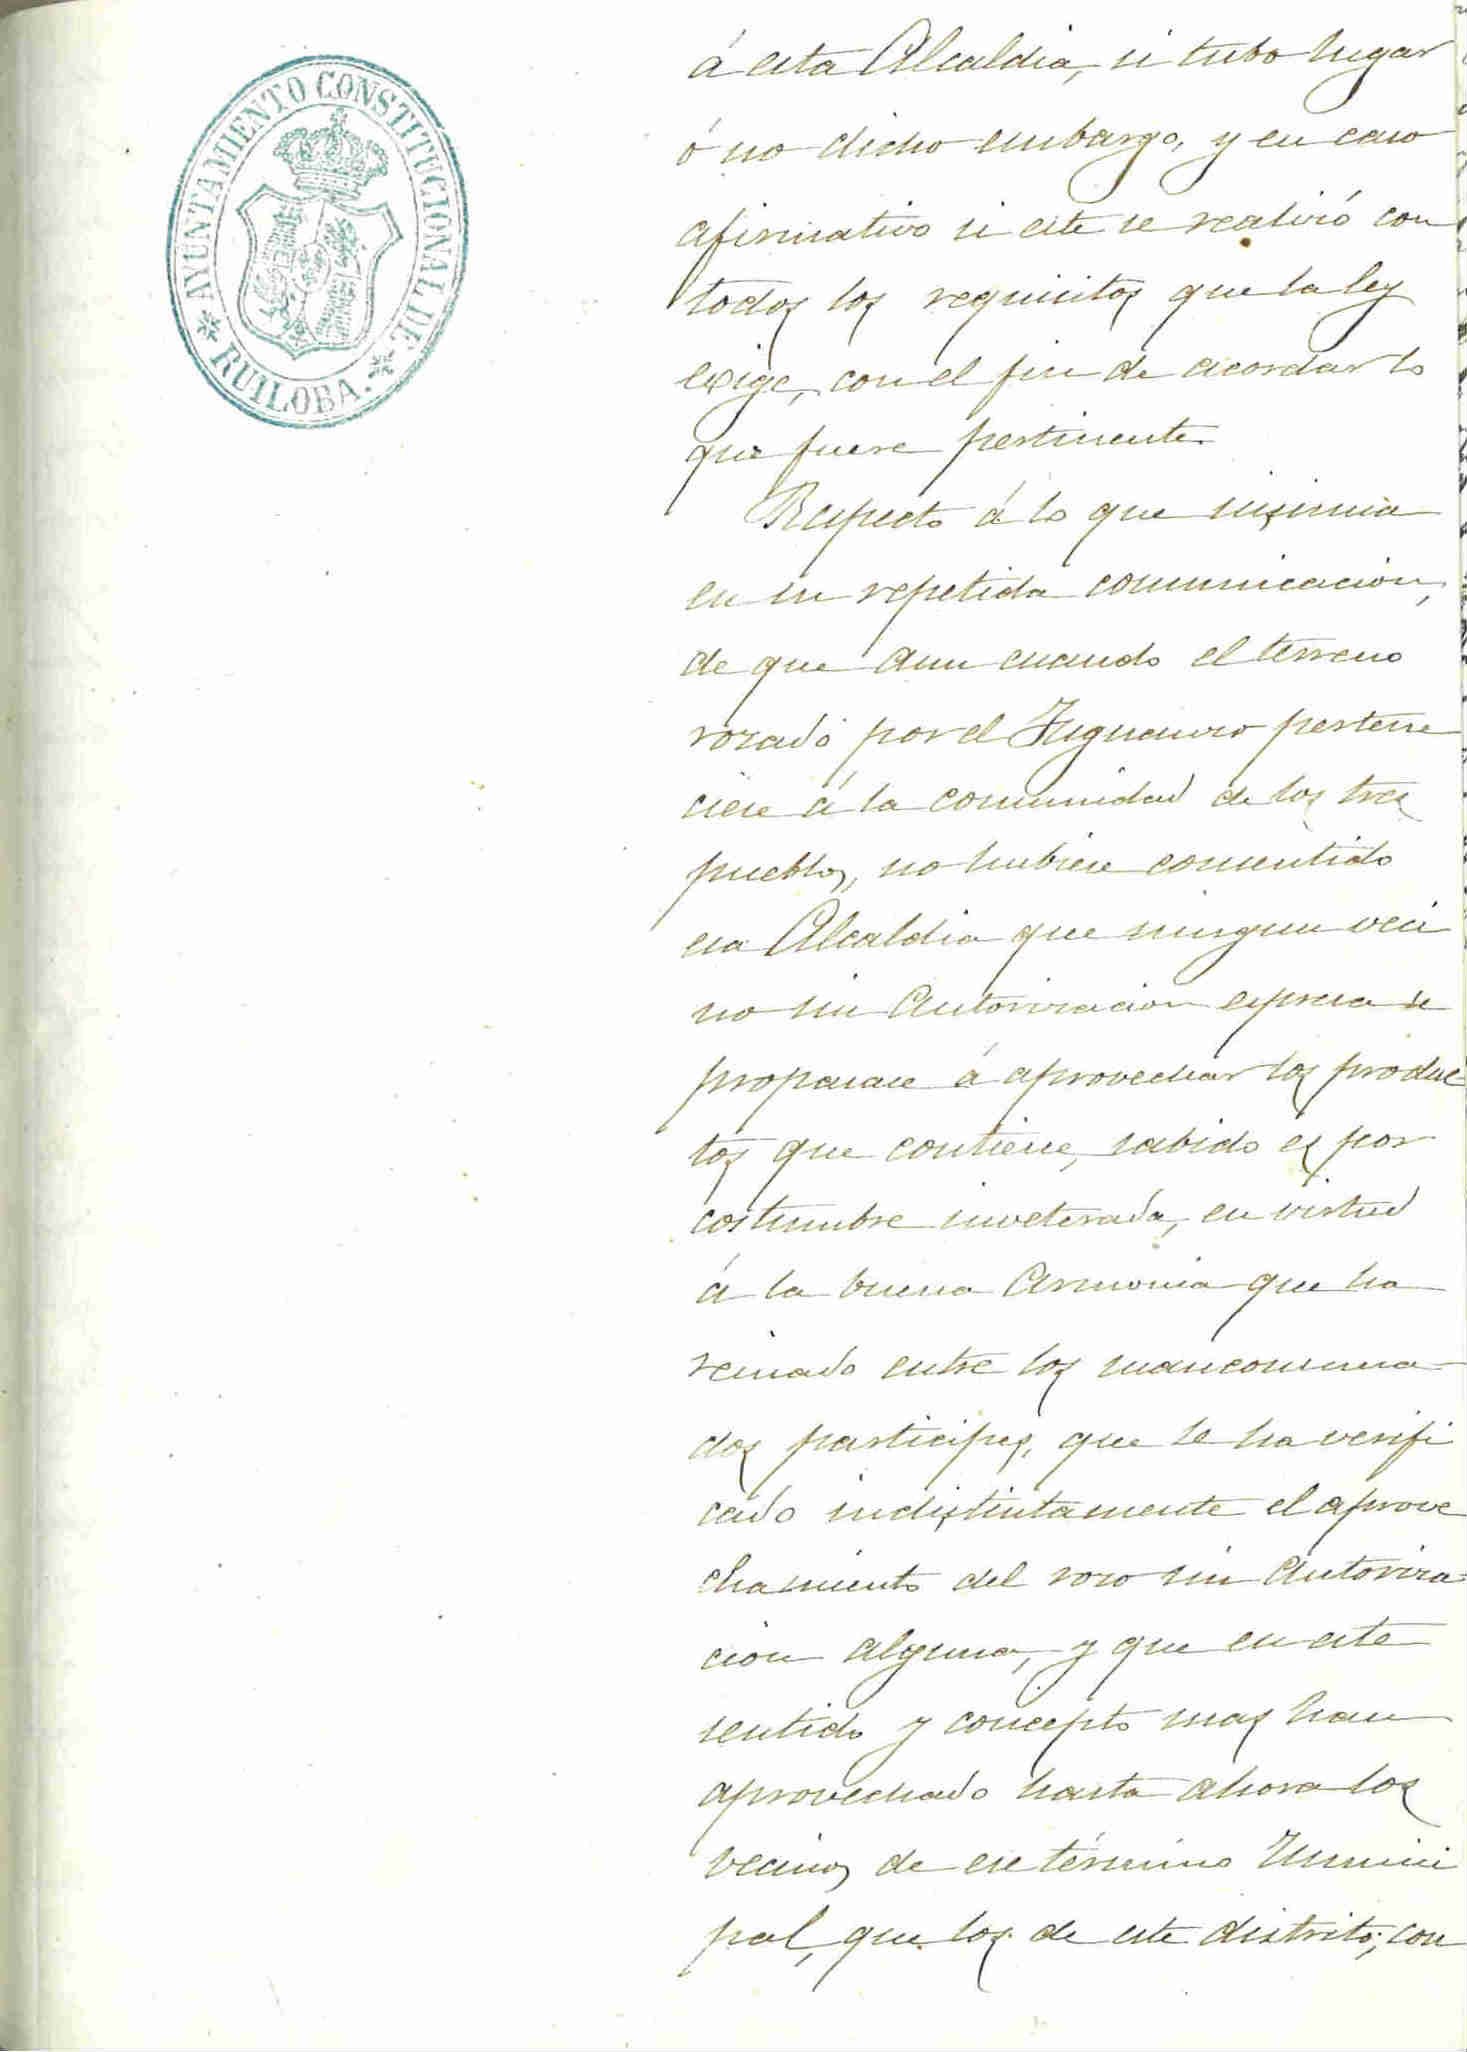 AYUNTAMIENTO CONSTITUCIONAL DE
* RUILOBA. *
á esta Alcaldia, si tubo lugar
ó no dicho embargo, y en caso
afirmativo si este se realizó con
todos los requisitos que la ley
exige, con el fin de acordar lo
que fuere pertinente.
Respecto á lo que insinua
en su repetida comunicacion,
de que aun cuando el terreno
rozado por el pertene
ciese á la comunidad de los tres
pueblos, no hubiese consentido
esa Alcaldia que ningun veci
no sin autorizacion espresa se
propasase á aprovechar los produc
tos que contiene, sabido es por
costumbre inveterada, en virtud
á la buena armonia que ha
reinado entre los mancomuna-
dos participes, que se ha verifi
cado indistintamente el aprove
chamiento del rozo sin autoriza-
cion alguna, y que en este
sentido y concepto mas han
aprovechado hasta ahora los
vecinos de ese término Munici
pal, que los de este distrito; con